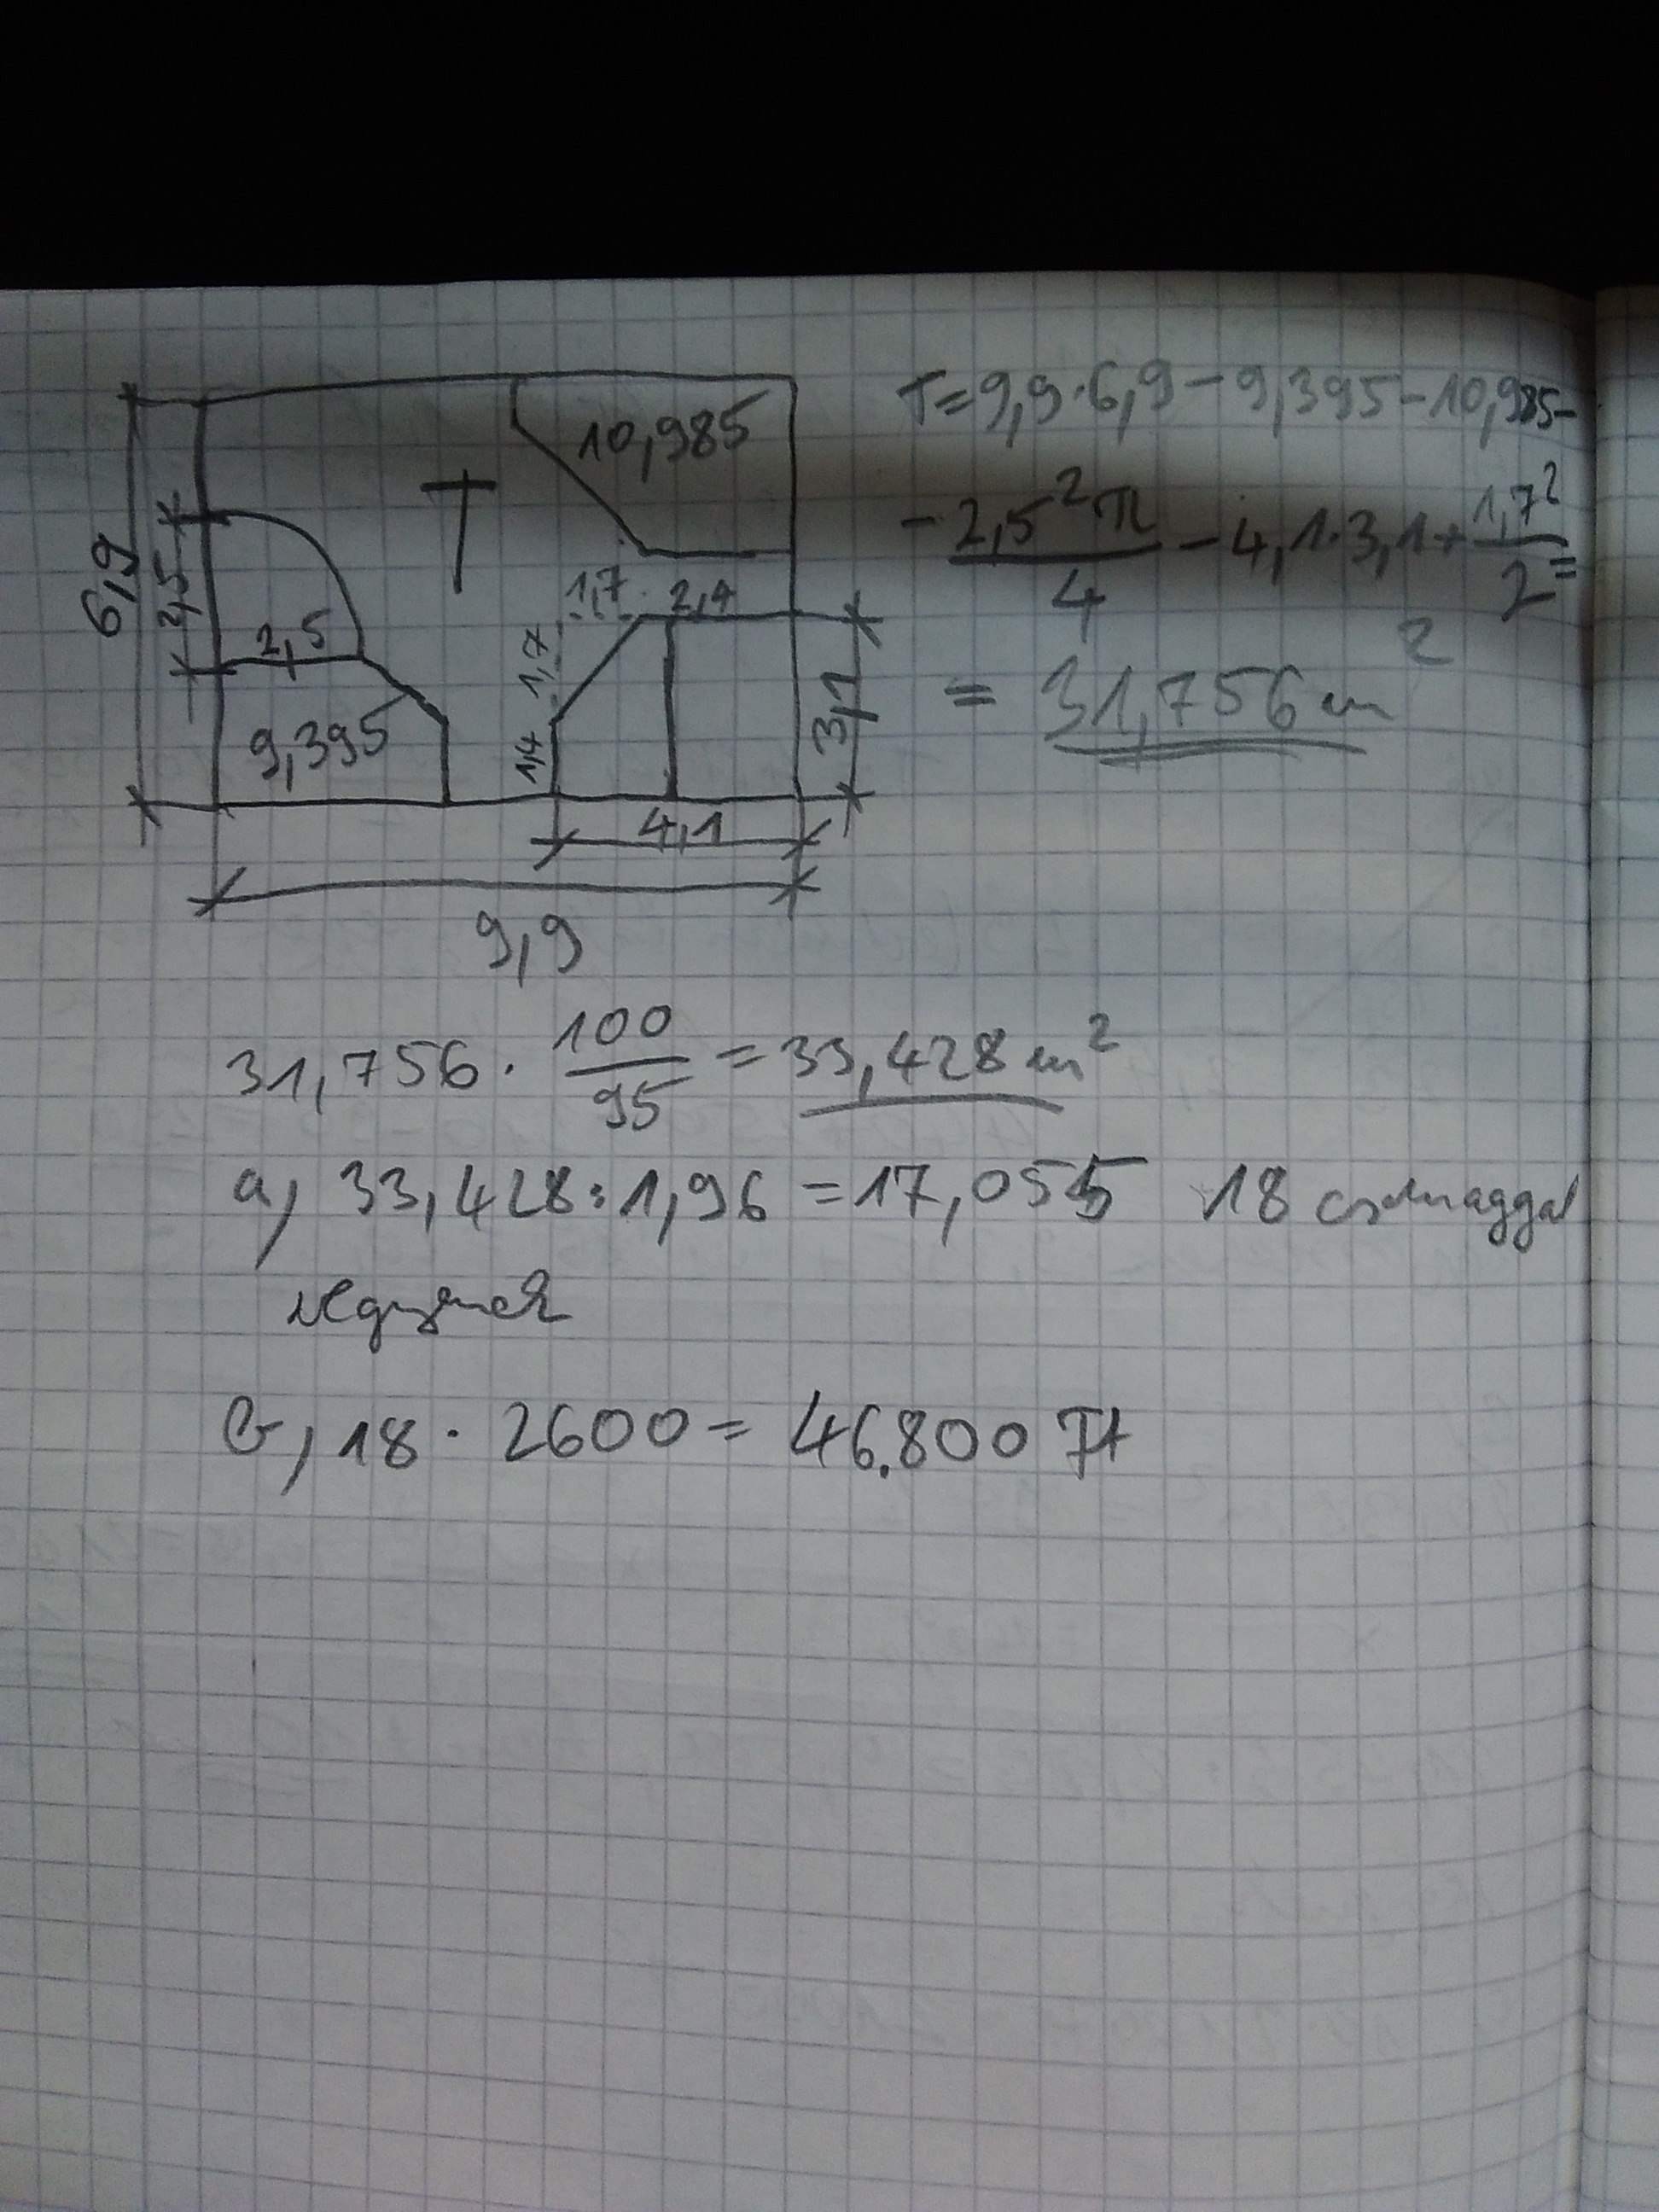 10,985
T
6,9
2,5
2,5
9,395
1,7
2,4
1,7
1,4
3,1
4,1
9,9
T=9,9·6,9-9,395-10,985-
-2,5²π/4-4,1·3,1+1,7²/2=
=31,756 m²
31,756·100/95=33,428 m²
a, 33,428:1,96=17,055 18 csomaggal
vegyenek
b, 18·2600=46.800 Ft